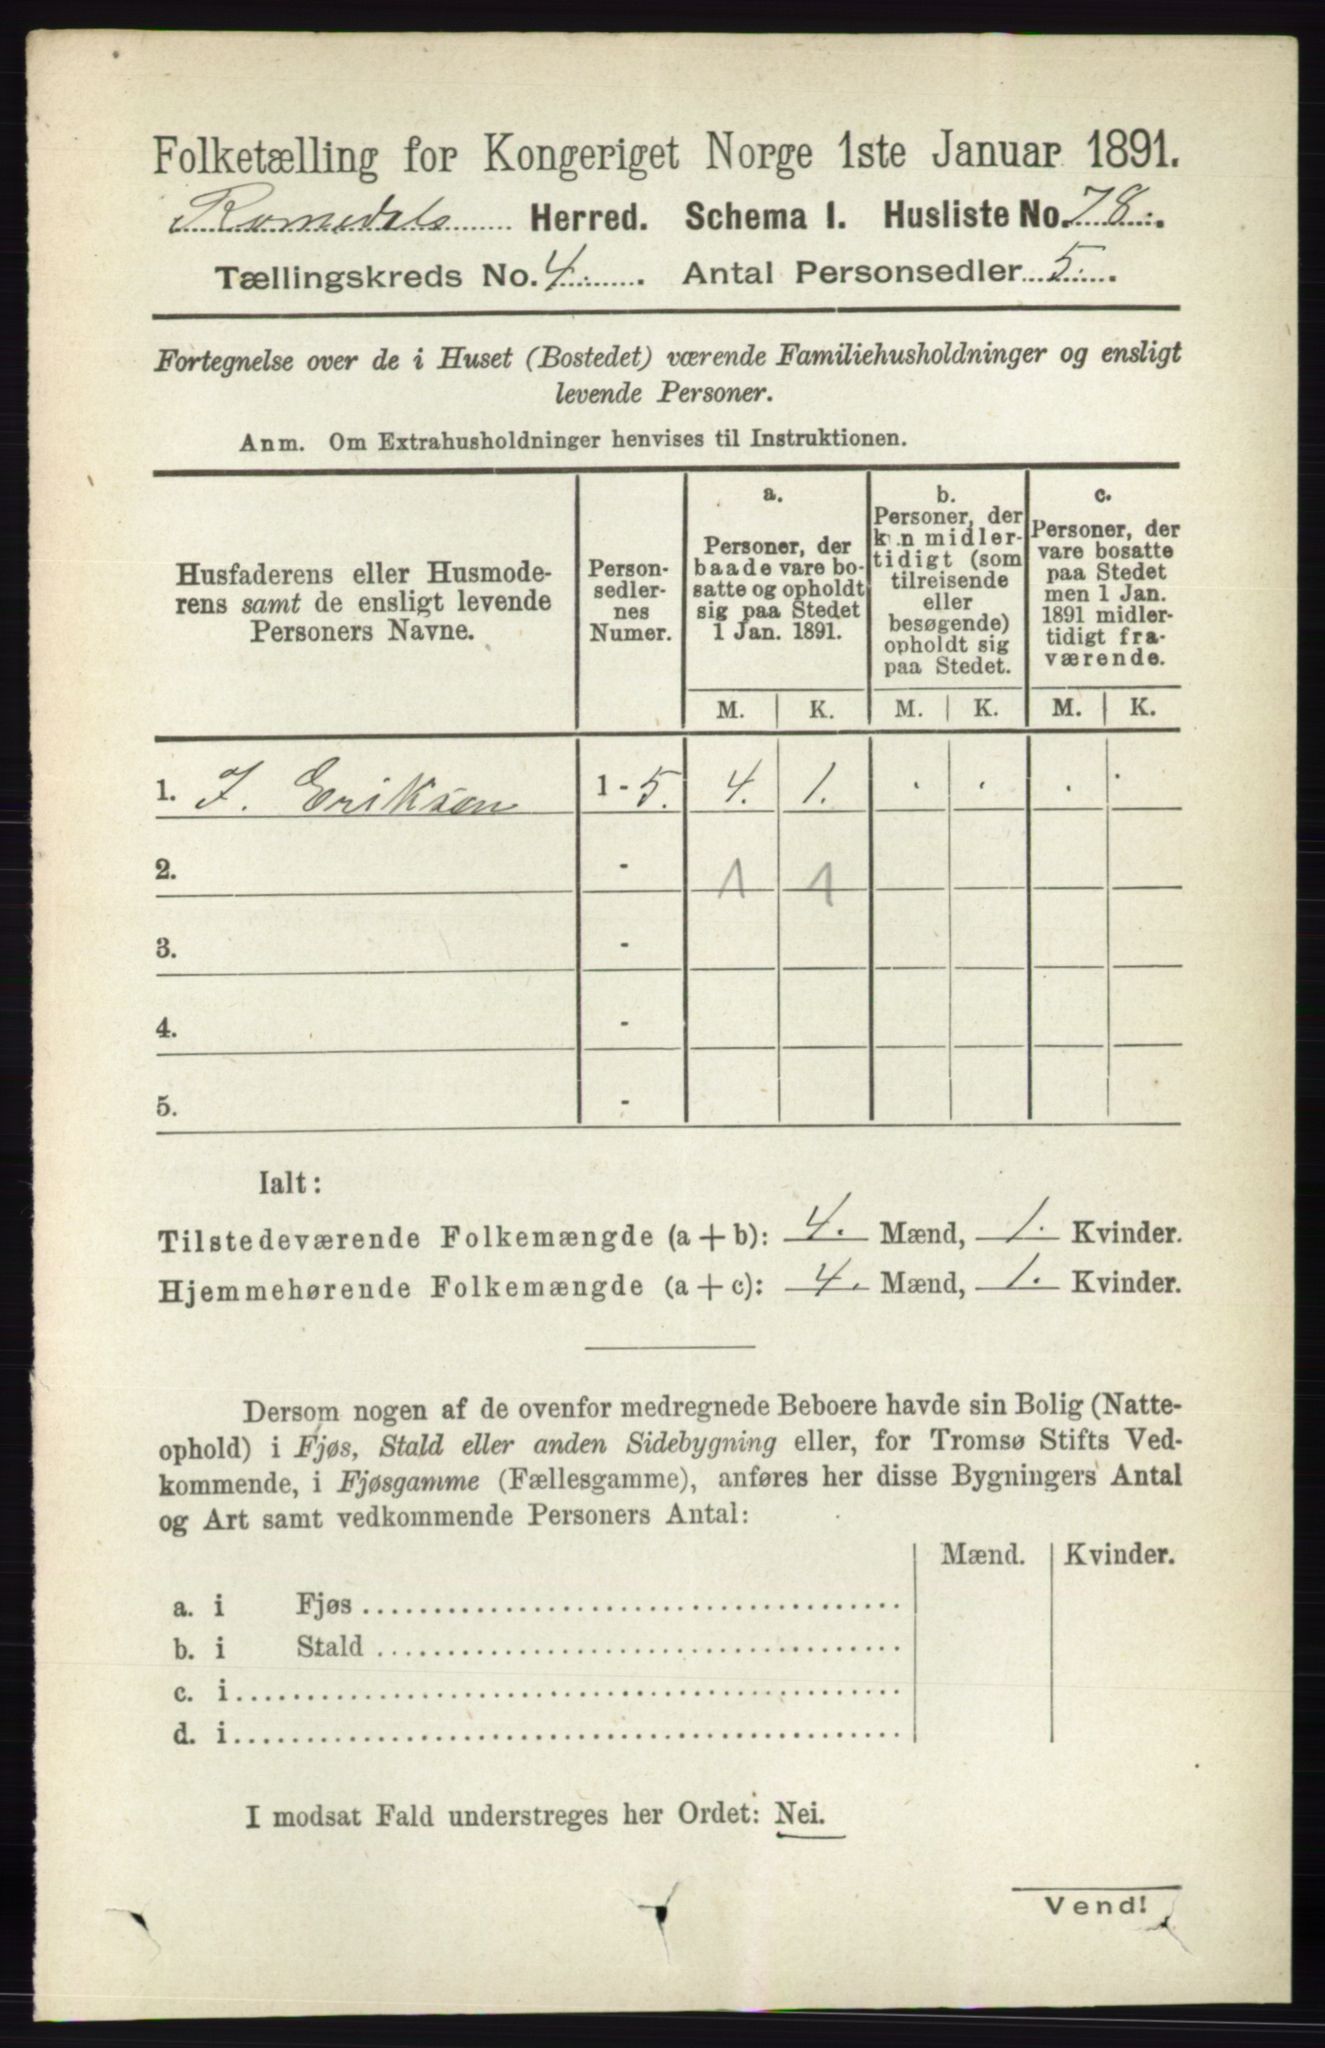 Folketælling for Kongeriget Norge 1ste Januar 1891.
Romedals Herred. Schema I. Husliste No. 78.
Tællingskreds No. 4. Antal Personsedler 5.
Fortegnelse over de i Huset (Bostedet) værende Familiehusholdninger og ensligt
levende Personer.
Anm. Om Extrahusholdninger henvises til Instruktionen.
Husfaderens eller Husmode-
rens samt de ensligt levende
Personers Navne.
Person-
sedler-
nes
Numer.
a.
Personer, der
baade vare bo-
satte og opholdt
sig paa Stedet
1 Jan. 1891.
b.
Personer, der
kun midler-
tidigt (som
tilreisende
eller
besøgende)
opholdt sig
paa Stedet.
c.
Personer, der
vare bosatte
paa Stedet
men 1 Jan.
1891 midler-
tidigt fra-
værende.
M. K. M. K. M. K.
1. J. Erikson 1 - 5. 4. 1. . . . .
2. - 1 1
3. -
4. -
5. -
Ialt:
Tilstedeværende Folkemængde (a + b): 4. Mænd, 1. Kvinder.
Hjemmehørende Folkemængde (a + c): 4. Mænd, 1. Kvinder.
Dersom nogen af de ovenfor medregnede Beboere havde sin Bolig (Natte-
ophold) i Fjøs, Stald eller anden Sidebygning eller, for Tromsø Stifts Ved-
kommende, i Fjøsgamme (Fællesgamme), anføres her disse Bygningers Antal
og Art samt vedkommende Personers Antal:
Mænd. Kvinder.
a. i Fjøs
b. i Stald
c. i
d. i
I modsat Fald understreges her Ordet: Nei.
Vend!